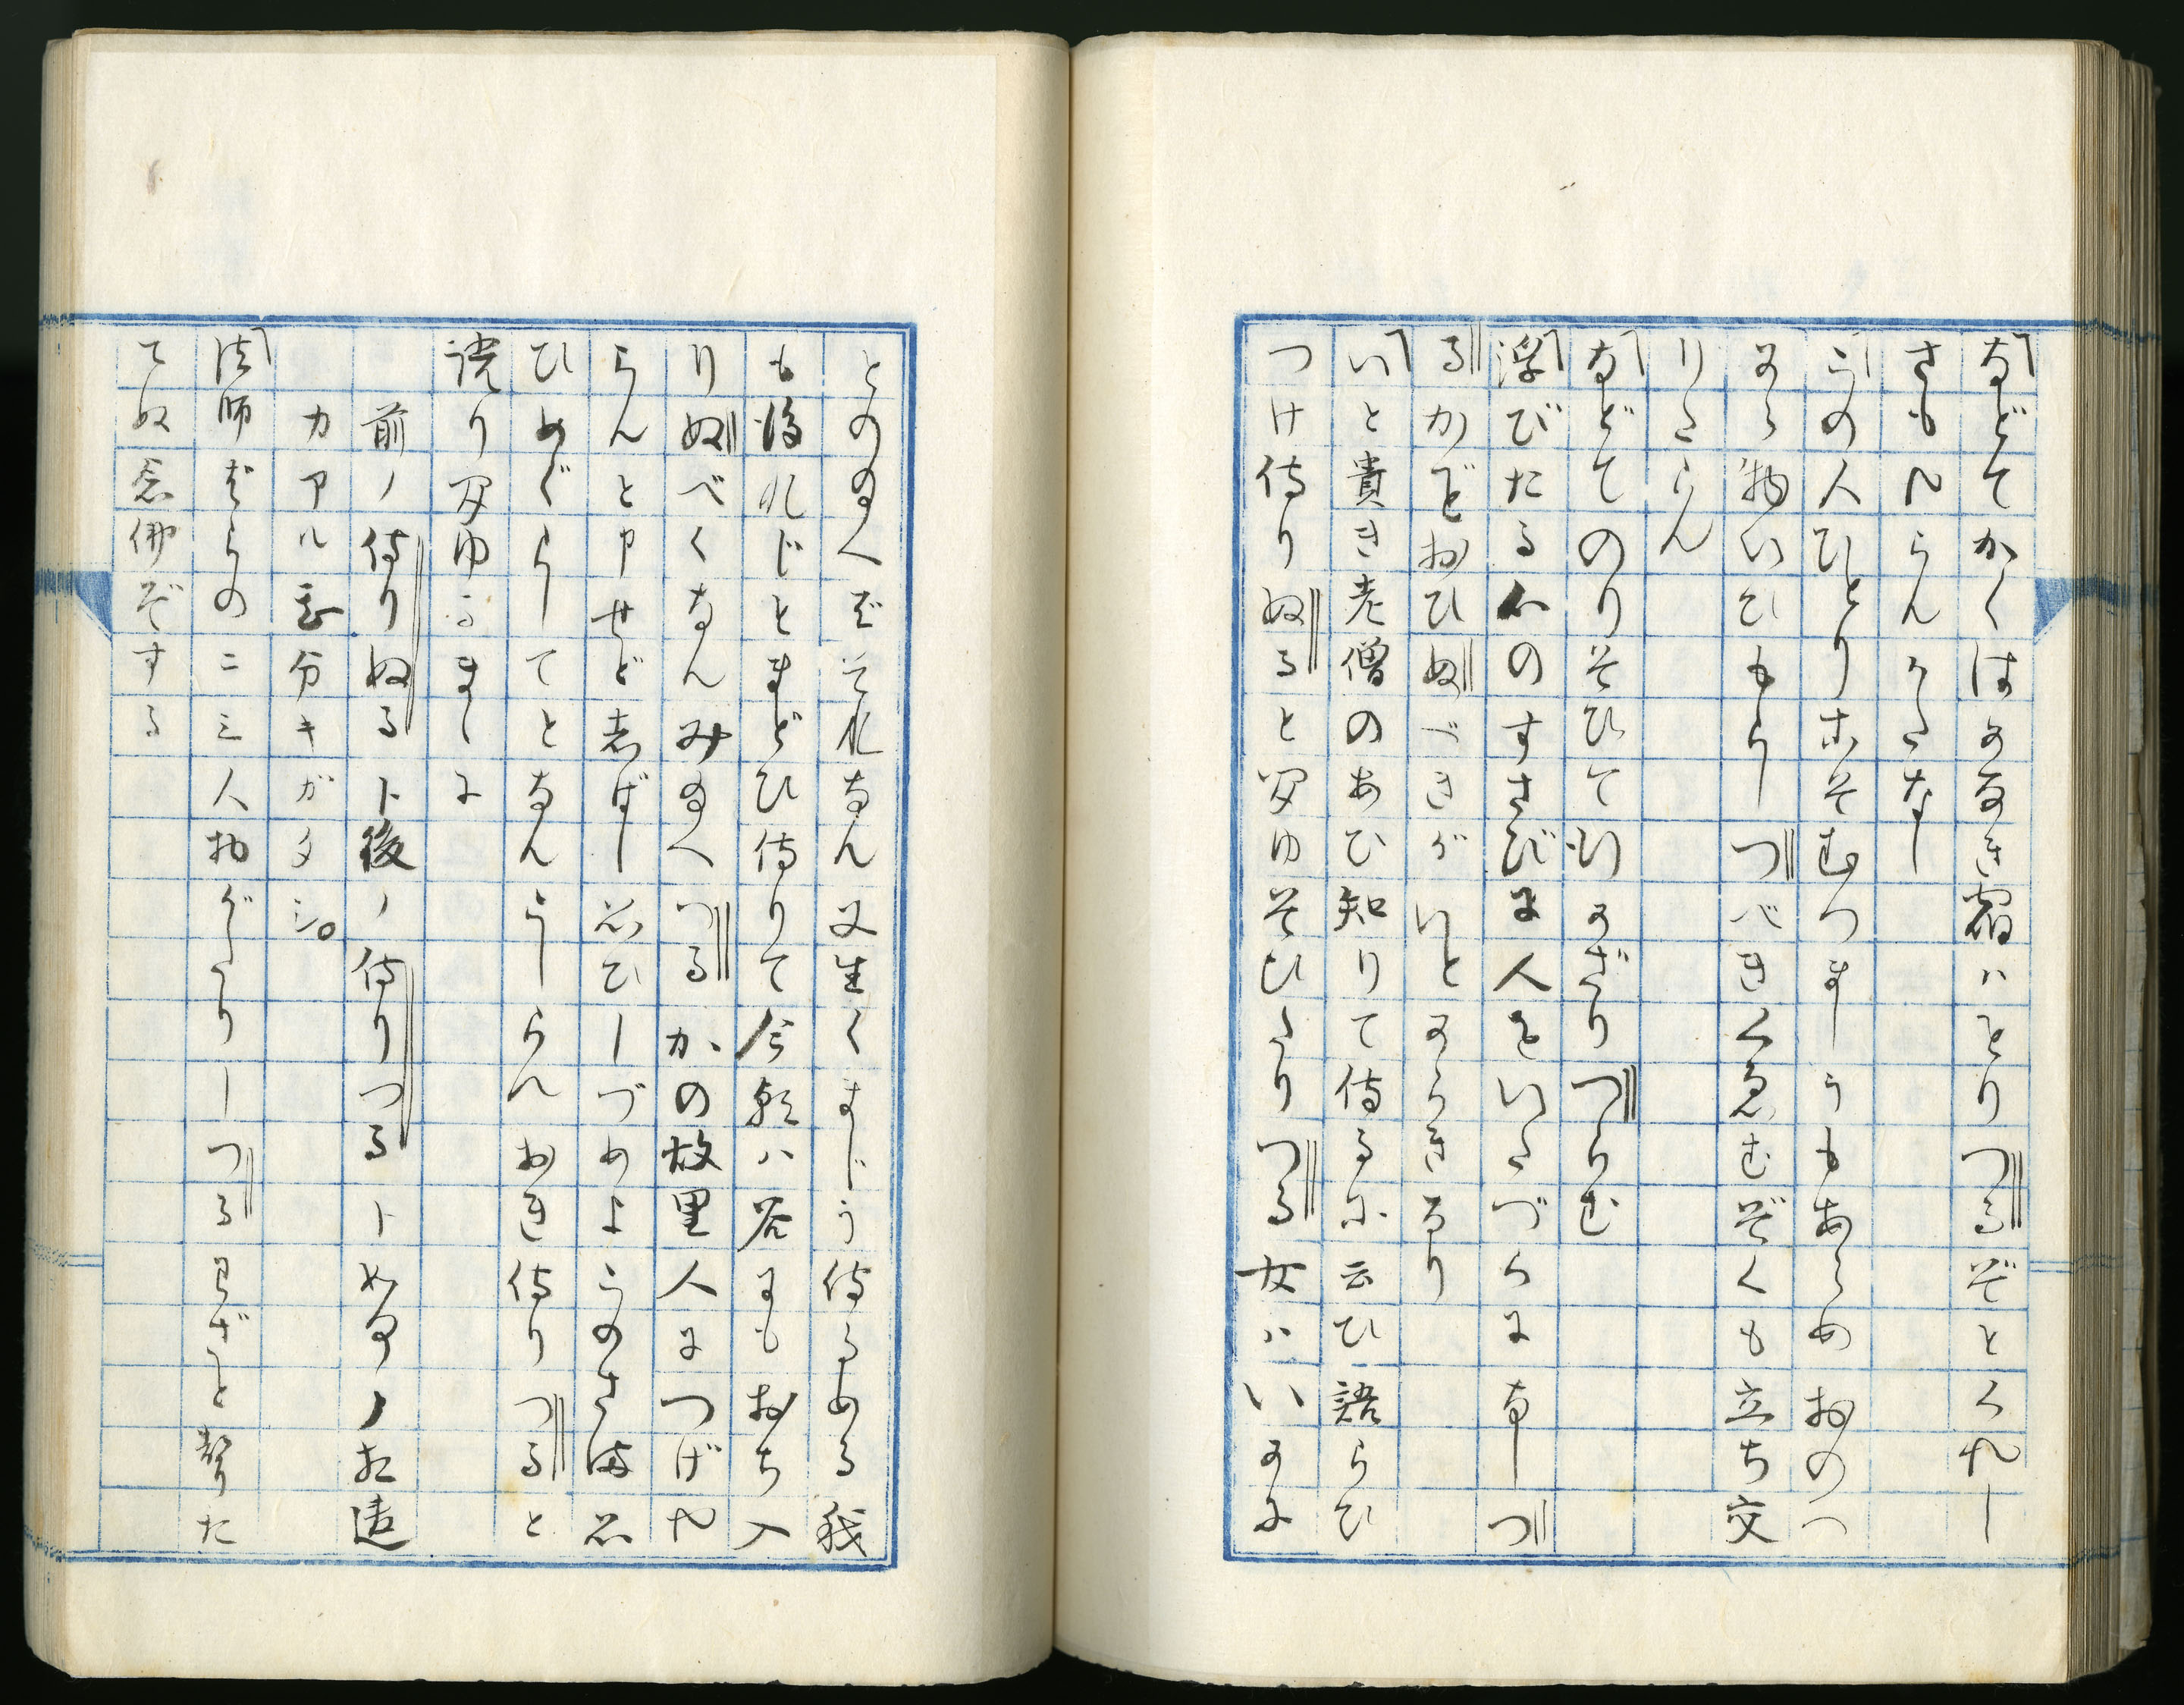 「などてかくはかなき宿ハとりつるぞとくれし
さもんらんかたなし
「この人ひとりこそむつましうもあらめおのつ
から物いひもらしつべきくゑむぞくも立ち交
りたらん
「などてのりそひて行かざりつらむ
「浮びたる心のすさびに人をいたづらになしつ
るかどおひぬべきがいとからきなり
「いと貴き老僧のあひ知りて侍るに云ひ語らひ
つけ侍りぬると聞ゆそひたりつる女ハいかに
とのたまへばそれなん又生くまじう侍るめる我
も後れじとまどひ侍りて今朝ハ谷にもおち入
りぬべくなんみたまへつるかの故里人につげや
らんと申せど志ばし思ひしづめよことのさま思
ひめぐらしてとなんこしらへおき侍りつると
語り聞ゆるまゝに
前ノ侍りぬるト後ノ侍りつるトめるノノ相違
カアル故分キガタシ。
「法師ばらの二三人物がたりしつゝわざと声た
てぬ念佛ぞする